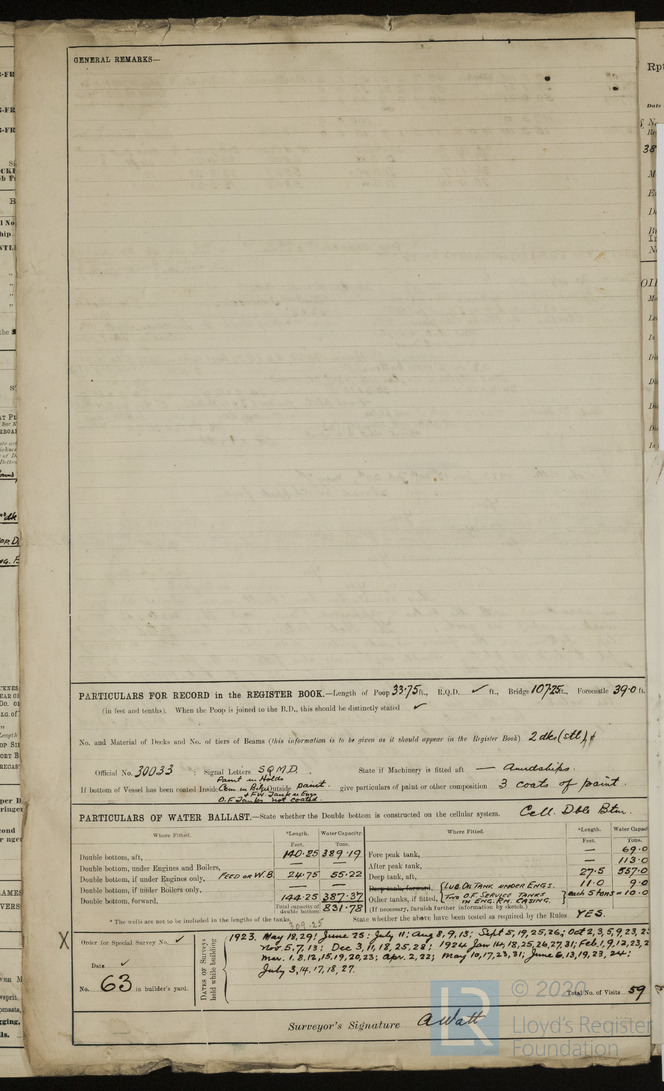 GENERAL REMARKS—
PARTICULARS FOR RECORD in the REGISTER BOOK.—Length of Poop 33·75 ft., R.Q.D. ✓ ft., Bridge 107·25 ft., Forecastle 39·0 ft.
(in feet and tenths). When the Poop is joined to the B.D., this should be distinctly stated ✓
No. and Material of Decks and No. of tiers of Beams (this information is to be given as it should appear in the Register Book) 2 dks (stl)
Official No. 30033 ; Signal Letters S.Q.M.D. State if Machinery is fitted aft — Amidships.
Paint in Holds
If bottom of Vessel has been coated Inside Cem in Bilges Outside paint. give particulars of paint or other composition 3 coats of paint.
& F.W. Tank in Engs
O.F. Tanks not coated.
PARTICULARS OF WATER BALLAST.—State whether the Double bottom is constructed on the cellular system. Cell. Dble Btm.
Where Fitted. *Length. Water Capacity. Where Fitted. *Length. Water Capac
Feet. Tons. Feet. Tons.
Double bottom, aft, 140·25 389·19 Fore peak tank, — 69·0
Double bottom, under Engines and Boilers, — — After peak tank, — 113·0
Double bottom, if under Engines only, FEED OR W.B. 24·75 55·22 Deep tank, aft, 27·5 557·0
Double bottom, if under Boilers only, — — Deep tank, forward, LUB. OIL TANK UNDER ENGS. 11·0 9·0
Double bottom, forward, 144·25 387·37 Other tanks, if fitted, TWO O.F. SERVICE TANKS IN ENG. RM. CASING. each 5 tons = 10·0
Total capacity of double bottom 831·78 (If necessary, furnish further information by sketch.)
* The wells are not to be included in the lengths of the tanks. 309·25 State whether the above have been tested as required by the Rules YES.
X Order for Special Survey No. ✓
Date ✓
No. 63 in builder's yard.
DATES of Surveys held while building
1923. May 18, 29; June 25; July 11; Aug 8, 9, 13; Sept 5, 19, 25, 26; Oct 2, 3, 5, 9, 23,
Nov. 5, 7, 13; Dec 3, 11, 18, 25, 28; 1924 Jan 14, 18, 25, 26, 27, 31; Feb. 1, 9, 12, 23,
Mar. 1, 8, 12, 15, 19, 20, 23; Apr. 2, 22; May 10, 17, 23, 31; June 6, 13, 19, 23, 24;
July 3, 14, 17, 18, 27.
Total No. of Visits 59
Surveyor's Signature A Watt
© 2020
LR
Lloyd's Register
Foundation